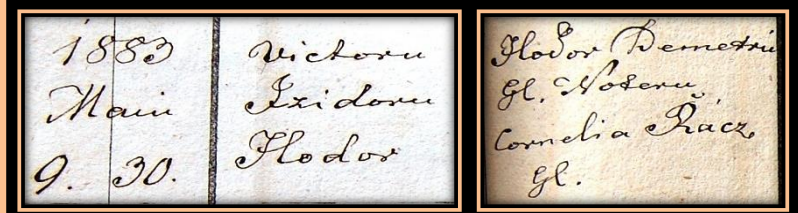 1883
Maiu
9. 30.
Victoru
Izidoru
Ilodor
Ilodor Demetriu
gl. Noteru,
Cornelia Rácz,
gl.